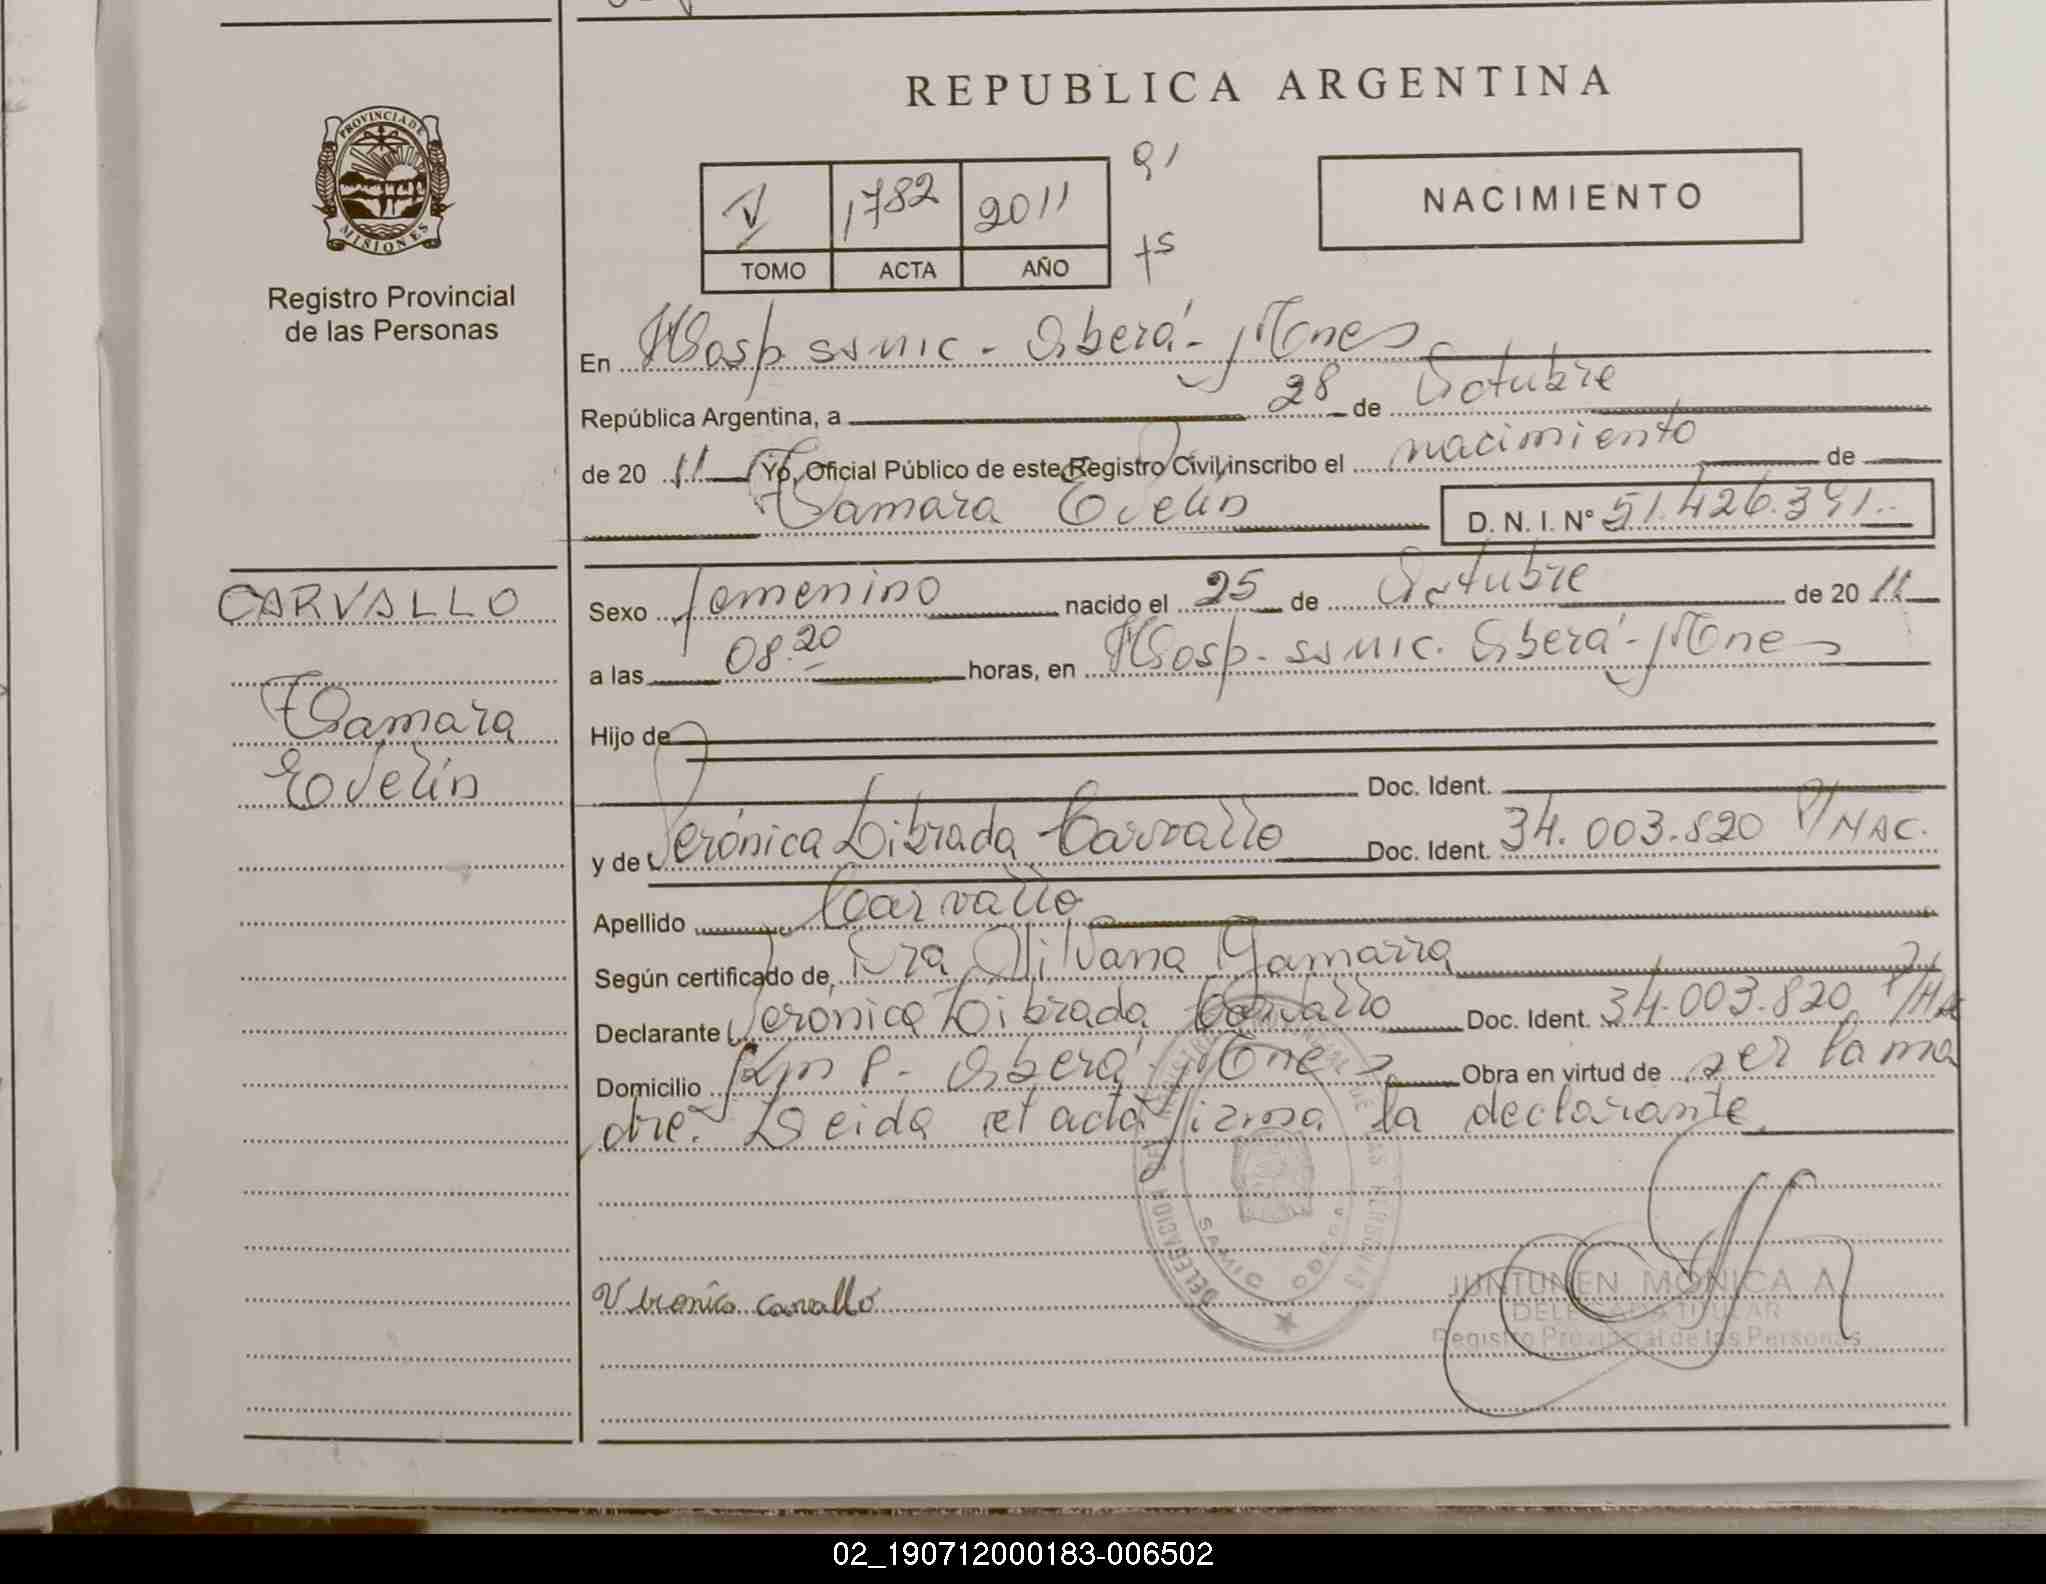 REPUBLICA ARGENTINA
PROVINCIA DE MISIONES
Registro Provincial
de las Personas
V 1782 2011
TOMO ACTA AÑO
NACIMIENTO
En Hosp. SSMIC - Oberá - Mnes
República Argentina, a 28 de Octubre
de 20 11 Yo, Oficial Público de este Registro Civil, inscribo el nacimiento de
Tamara Evelin D. N. I. N° 51.426.391
CARVALLO
Tamara
Evelin
Sexo femenino nacido el 25 de Octubre de 20 11
a las 08.20 horas, en Hosp. SSMIC. Oberá - Mnes
Hijo de
Doc. Ident.
y de Verónica Librada Carvallo Doc. Ident. 34.003.820 P/NAC.
Apellido Carvallo
Según certificado de Dra Silvana Gamarra
Declarante Verónica Librada Carvallo Doc. Ident. 34.003.820
Domicilio Km 8 - Oberá - Mnes Obra en virtud de ser la ma
dre. Leida el acta firma la declarante.
Veronica Carvallo
JUNTUNEN MONICA A
DELEGADA TITULAR
Registro Provincial de las Personas
02_190712000183-006502